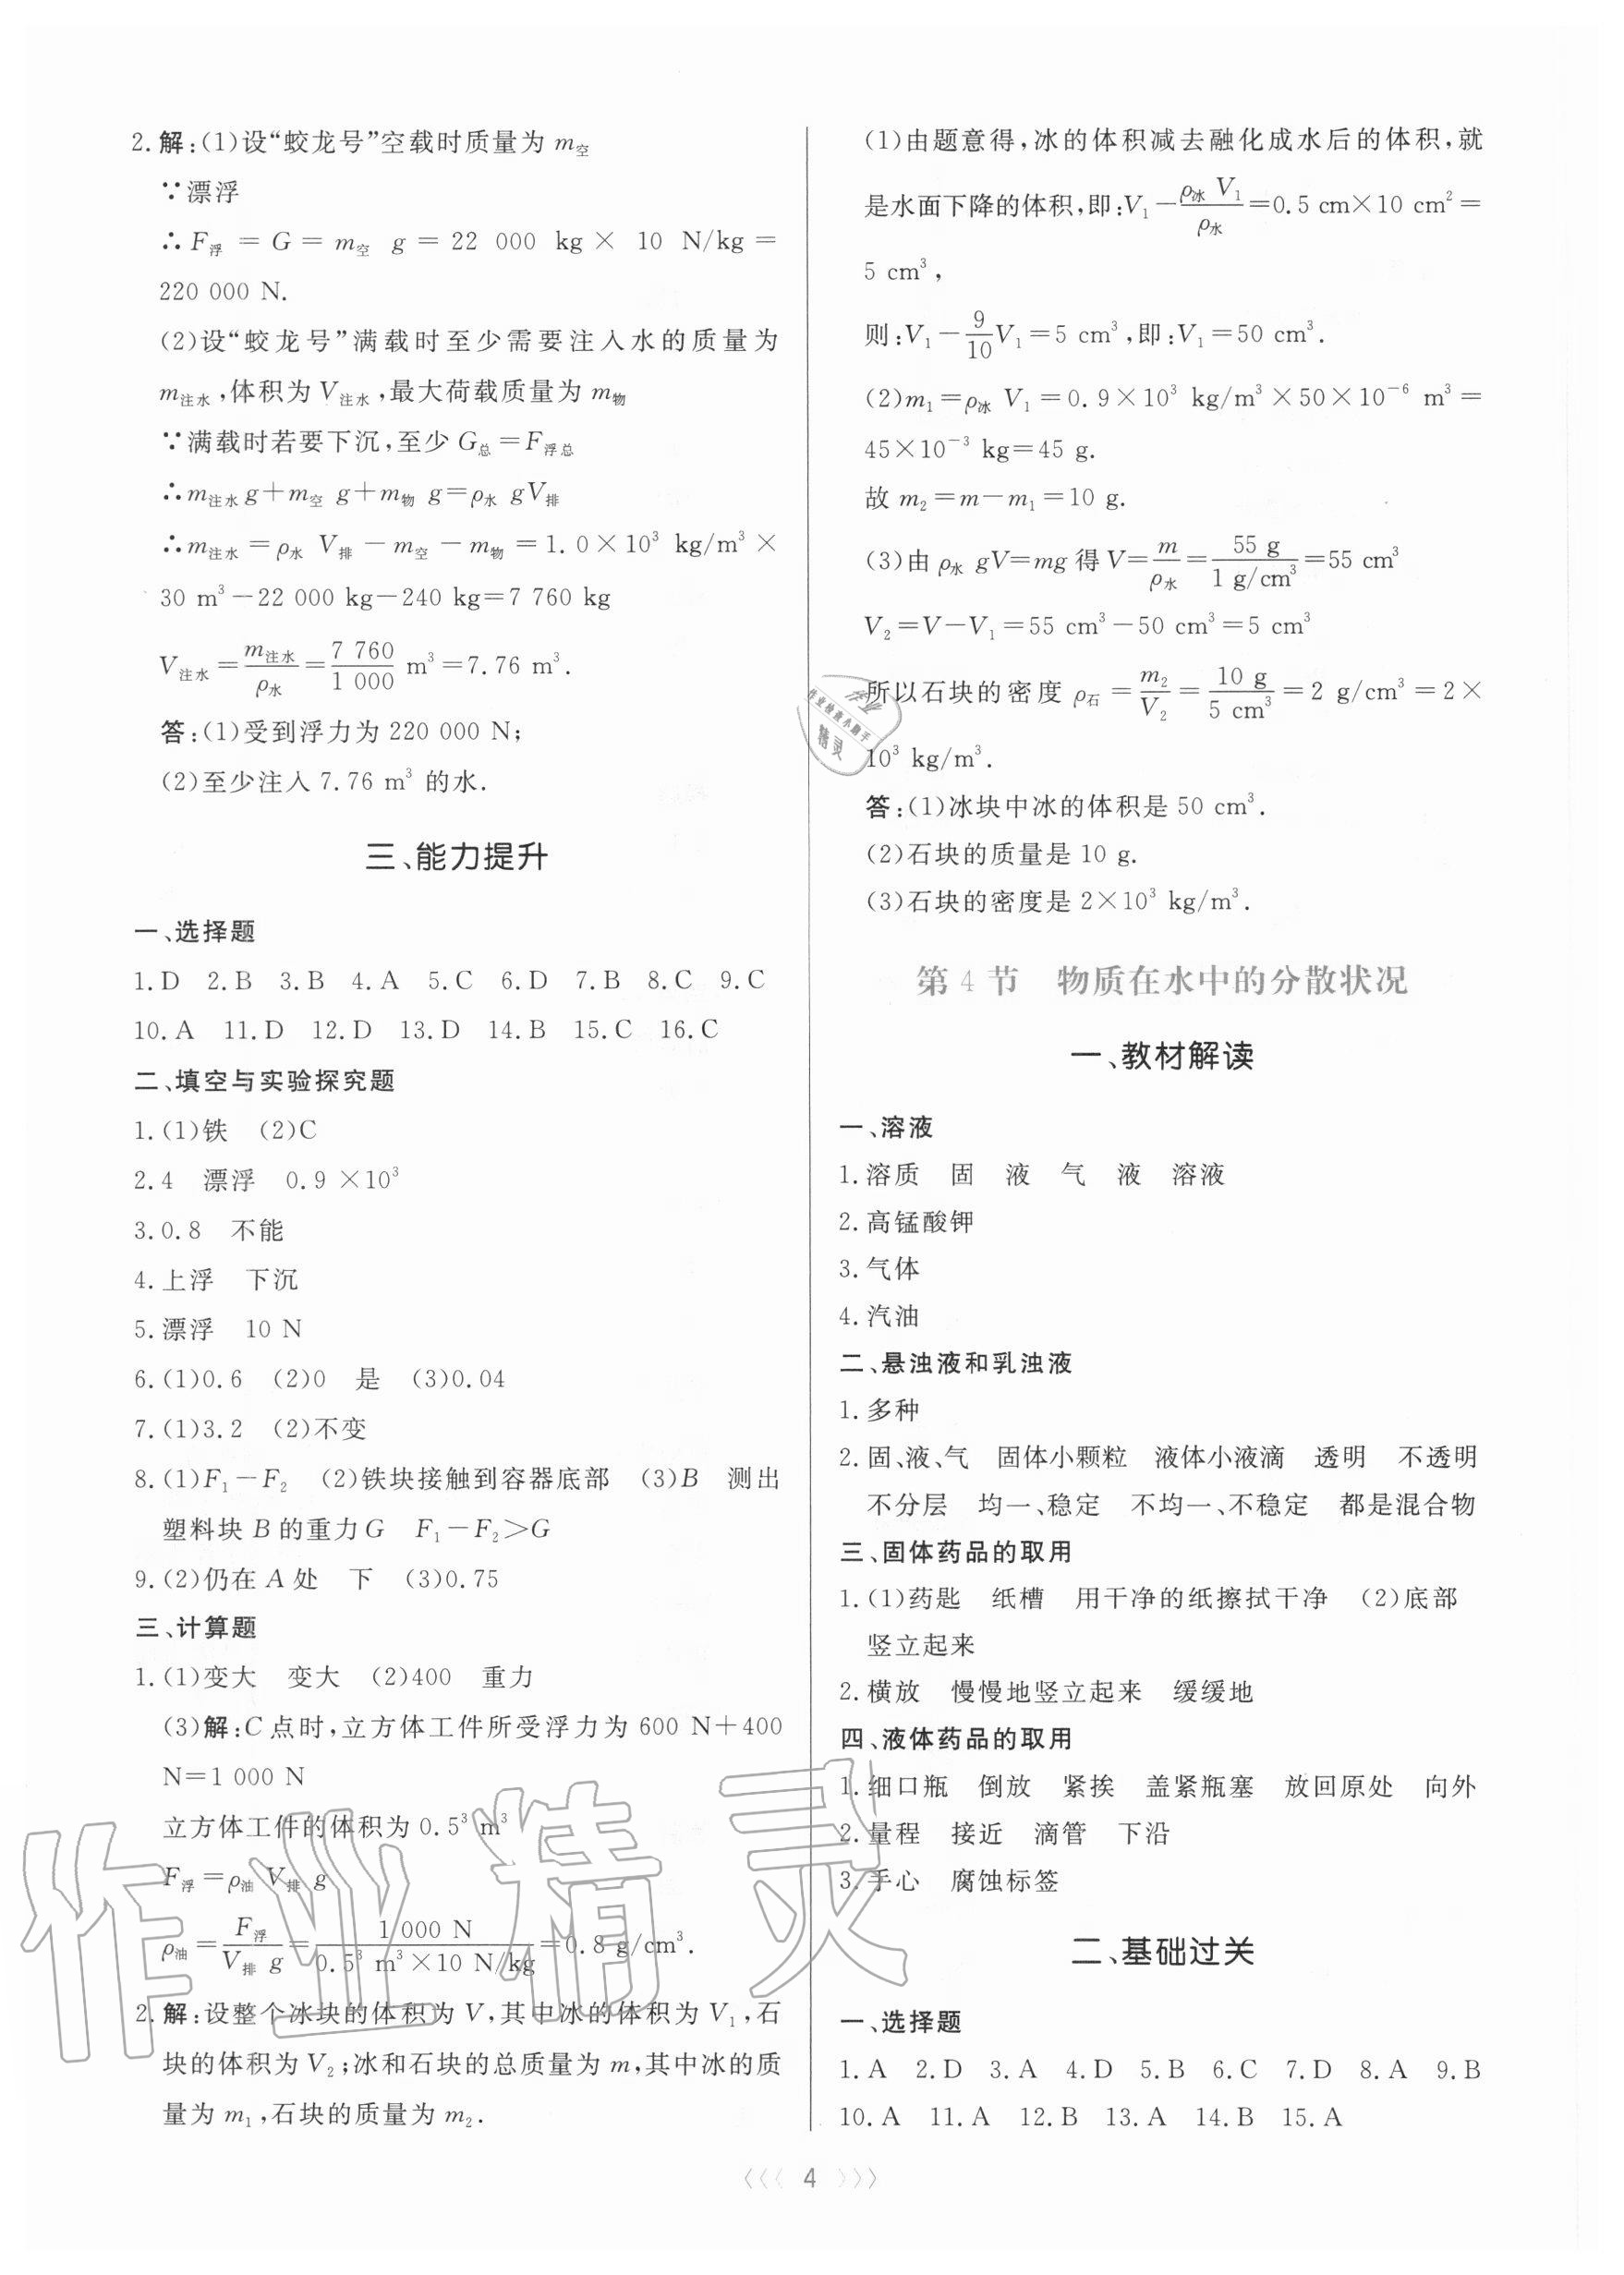 2.解:(1)设“蛟龙号”空载时质量为 m空
∵漂浮
∴F浮 = G = m空 g = 22 000 kg × 10 N/kg =
220 000 N.
(2)设“蛟龙号”满载时至少需要注入水的质量为
m注水,体积为 V注水,最大荷载质量为 m物
∵满载时若要下沉,至少 G总=F浮总
∴m注水g+m空 g+m物 g=ρ水 gV排
∴m注水=ρ水 V排-m空-m物=1.0×10³ kg/m³×
30 m³-22 000 kg-240 kg=7 760 kg
V注水=m注水/ρ水=7 760/1 000 m³=7.76 m³.
答:(1)受到浮力为 220 000 N;
(2)至少注入 7.76 m³ 的水.
三、能力提升
一、选择题
1.D 2.B 3.B 4.A 5.C 6.D 7.B 8.C 9.C
10.A 11.D 12.D 13.D 14.B 15.C 16.C
二、填空与实验探究题
1.(1)铁 (2)C
2.4 漂浮 0.9×10³
3.0.8 不能
4.上浮 下沉
5.漂浮 10 N
6.(1)0.6 (2)0 是 (3)0.04
7.(1)3.2 (2)不变
8.(1)F₁-F₂ (2)铁块接触到容器底部 (3)B 测出
塑料块 B 的重力 G F₁-F₂>G
9.(2)仍在 A 处 下 (3)0.75
三、计算题
1.(1)变大 变大 (2)400 重力
(3)解:C 点时,立方体工件所受浮力为 600 N+400
N=1 000 N
立方体工件的体积为 0.5³ m³
F浮=ρ油 V排 g
ρ油=F浮/V排 g=1 000 N/0.5³ m³×10 N/kg=0.8 g/cm³.
2.解:设整个冰块的体积为 V,其中冰的体积为 V₁,石
块的体积为 V₂;冰和石块的总质量为 m,其中冰的质
量为 m₁,石块的质量为 m₂.
(1)由题意得,冰的体积减去融化成水后的体积,就
是水面下降的体积,即:V₁-ρ冰 V₁/ρ水=0.5 cm×10 cm²=
5 cm³,
则:V₁-9/10V₁=5 cm³,即:V₁=50 cm³.
(2)m₁=ρ冰 V₁=0.9×10³ kg/m³×50×10⁻⁶ m³=
45×10⁻³ kg=45 g.
故 m₂=m-m₁=10 g.
(3)由 ρ水 gV=mg 得 V=m/ρ水=55 g/1 g/cm³=55 cm³
V₂=V-V₁=55 cm³-50 cm³=5 cm³
所以石块的密度 ρ石=m₂/V₂=10 g/5 cm³=2 g/cm³=2×
10³ kg/m³.
答:(1)冰块中冰的体积是 50 cm³.
(2)石块的质量是 10 g.
(3)石块的密度是 2×10³ kg/m³.
第 4 节 物质在水中的分散状况
一、教材解读
一、溶液
1.溶质 固 液 气 液 溶液
2.高锰酸钾
3.气体
4.汽油
二、悬浊液和乳浊液
1.多种
2.固、液、气 固体小颗粒 液体小液滴 透明 不透明
不分层 均一、稳定 不均一、不稳定 都是混合物
三、固体药品的取用
1.(1)药匙 纸槽 用干净的纸擦拭干净 (2)底部
竖立起来
2.横放 慢慢地竖立起来 缓缓地
四、液体药品的取用
1.细口瓶 倒放 紧挨 盖紧瓶塞 放回原处 向外
2.量程 接近 滴管 下沿
3.手心 腐蚀标签
二、基础过关
一、选择题
1.A 2.D 3.A 4.D 5.B 6.C 7.D 8.A 9.B
10.A 11.A 12.B 13.A 14.B 15.A
作业
作业检查小助手
精灵
作业精灵
〈〈〈 4 〉〉〉